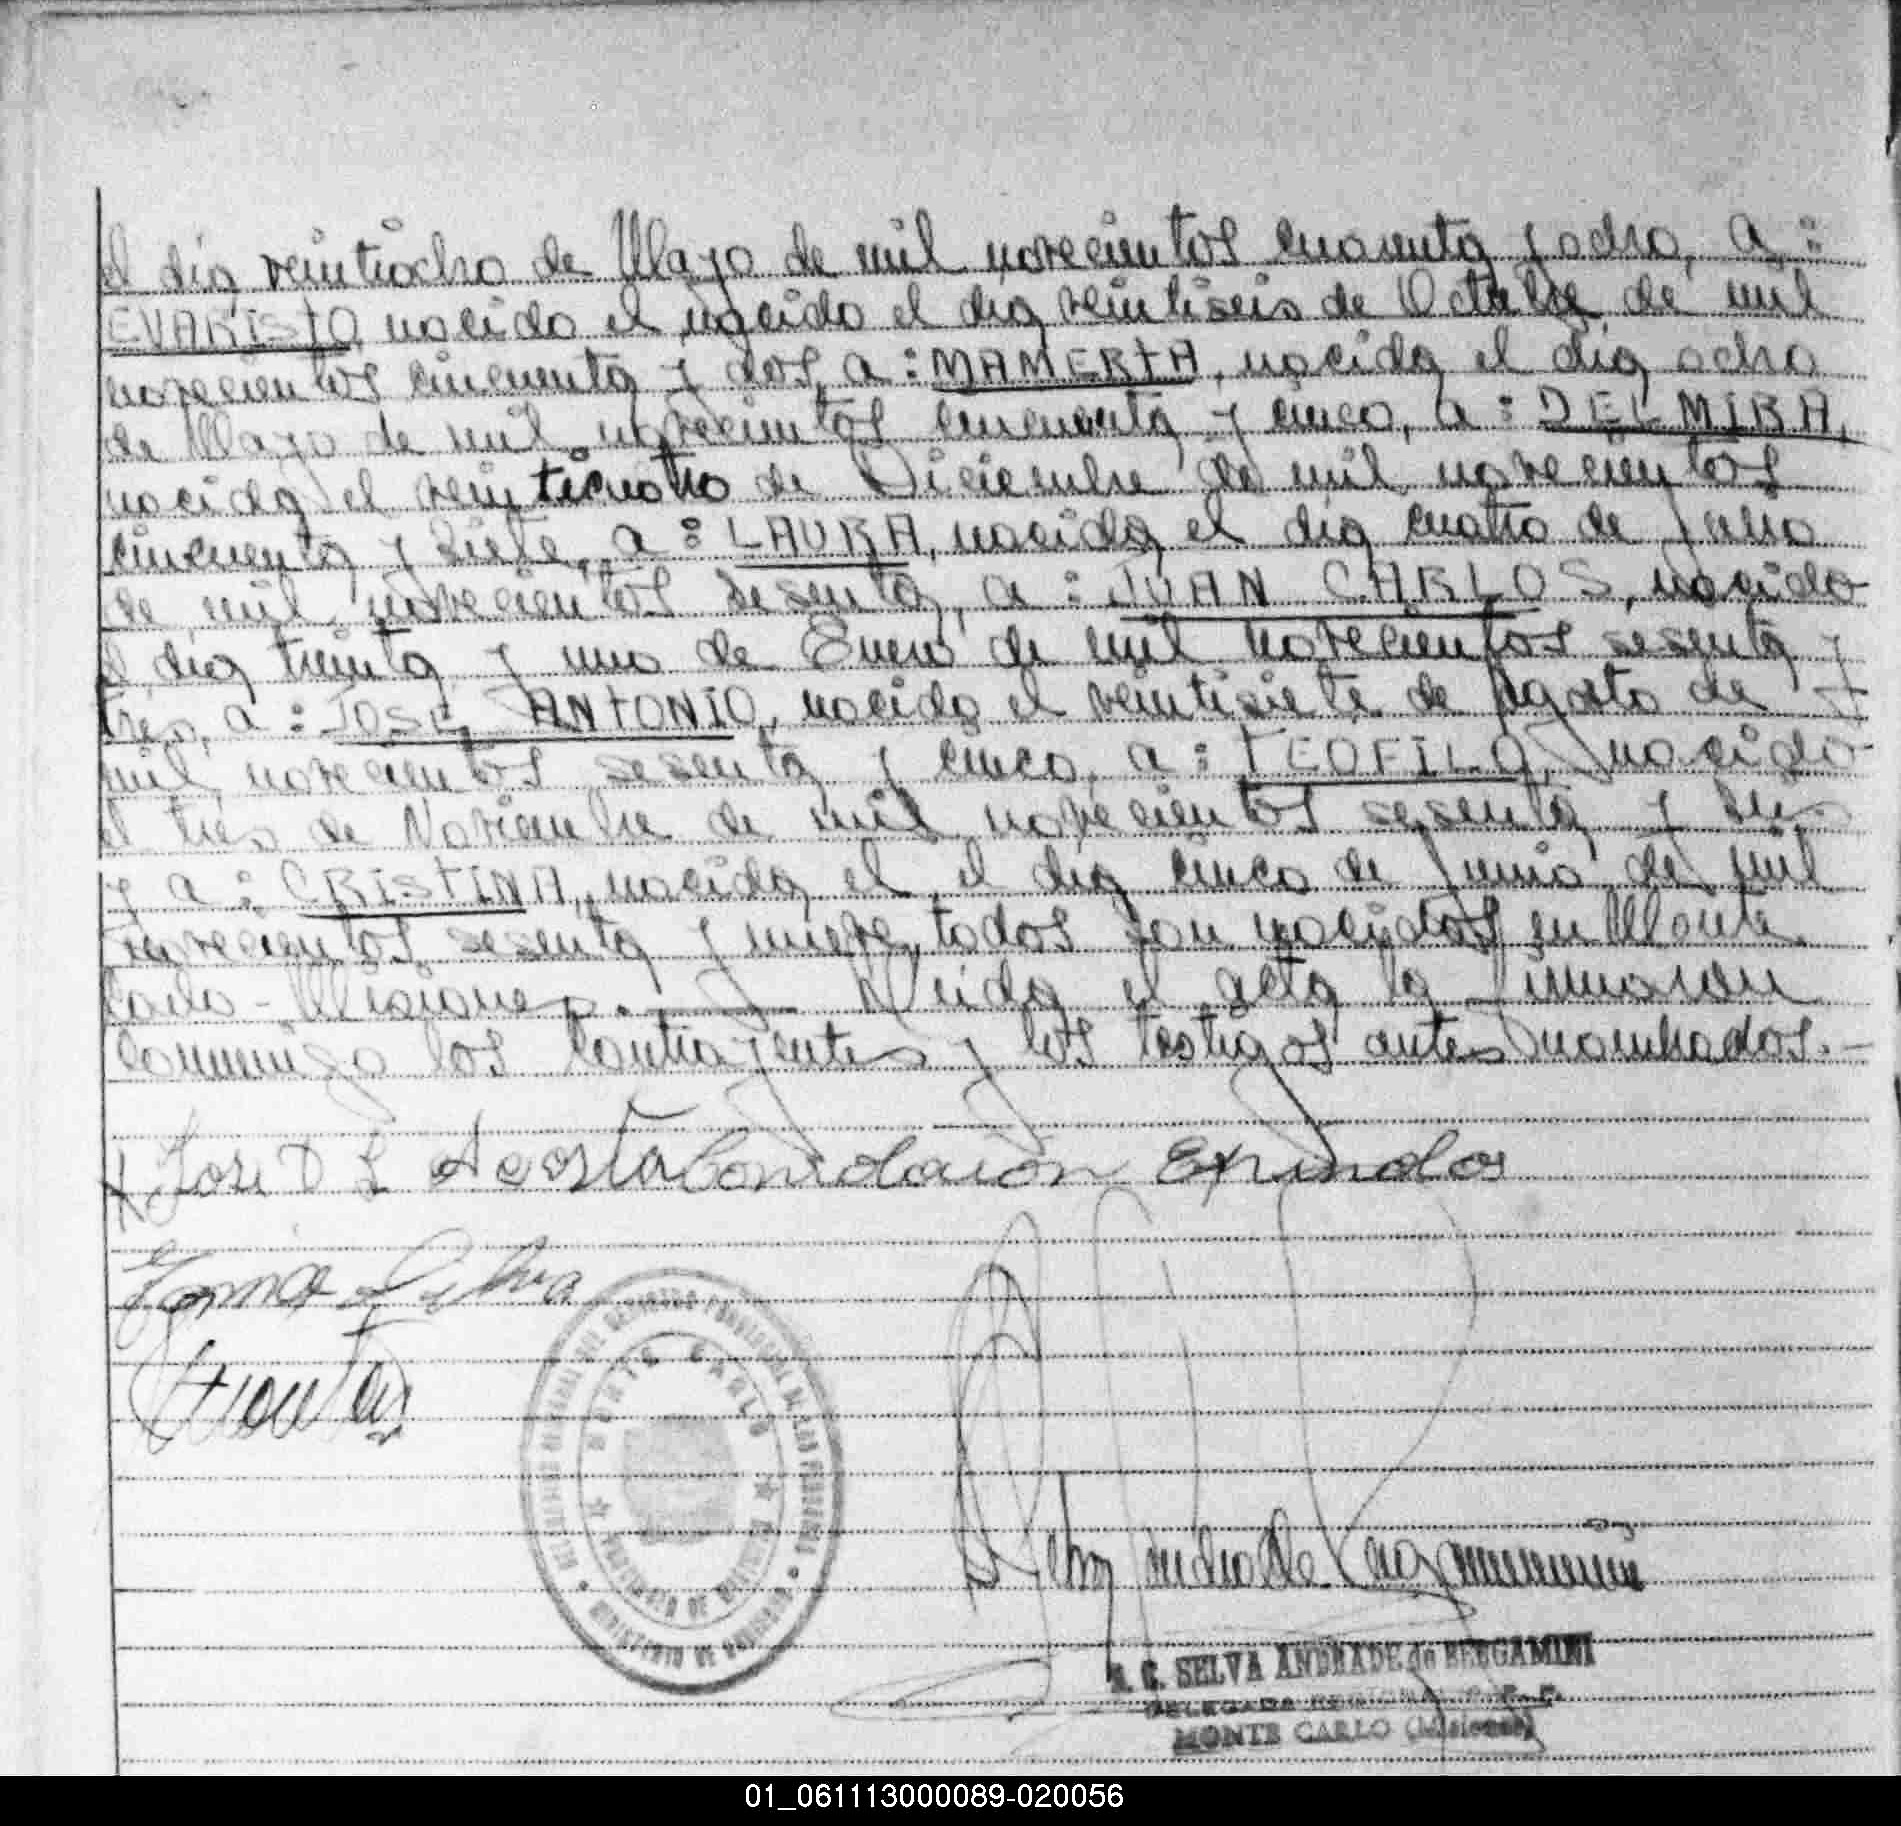 el día veintiocho de Mayo de mil novecientos cuarenta y ocho, a:
EVARISTO, nacido el nacido el día veintiseis de Octubre de mil
novecientos cincuenta y dos, a: MAMERTA, nacida el día ocho
de Mayo de mil novecientos cincuenta y cinco, a: DELMIRA,
nacida el veinticuatro de Diciembre de mil novecientos
cincuenta y siete, a: LAURA, nacida el día cuatro de Julio
de mil novecientos sesenta, a: JUAN CARLOS, nacido
el día treinta y uno de Enero de mil novecientos sesenta y
tres, a: JOSE ANTONIO, nacido el veintisiete de Agosto de
mil novecientos sesenta y cinco, a: TEOFILO, nacido
el tres de Noviembre de mil novecientos sesenta y
y a: CRISTINA, nacida el el día cinco de Junio de mil
novecientos sesenta y nueve, todos son nacidos en Monte
Carlo - Misiones.- Leída el acta la firmaron
conmigo los contrayentes y los testigos antes nombrados.-
José D L Acosta Consolación Espindola
Silva
MINISTERIO DE GOBIERNO
MONTE CARLO
PROVINCIA DE MISIONES
SELVA ANDRADE de BERGAMINI
DELEGADA
MONTE CARLO (Misiones)
01_061113000089-020056